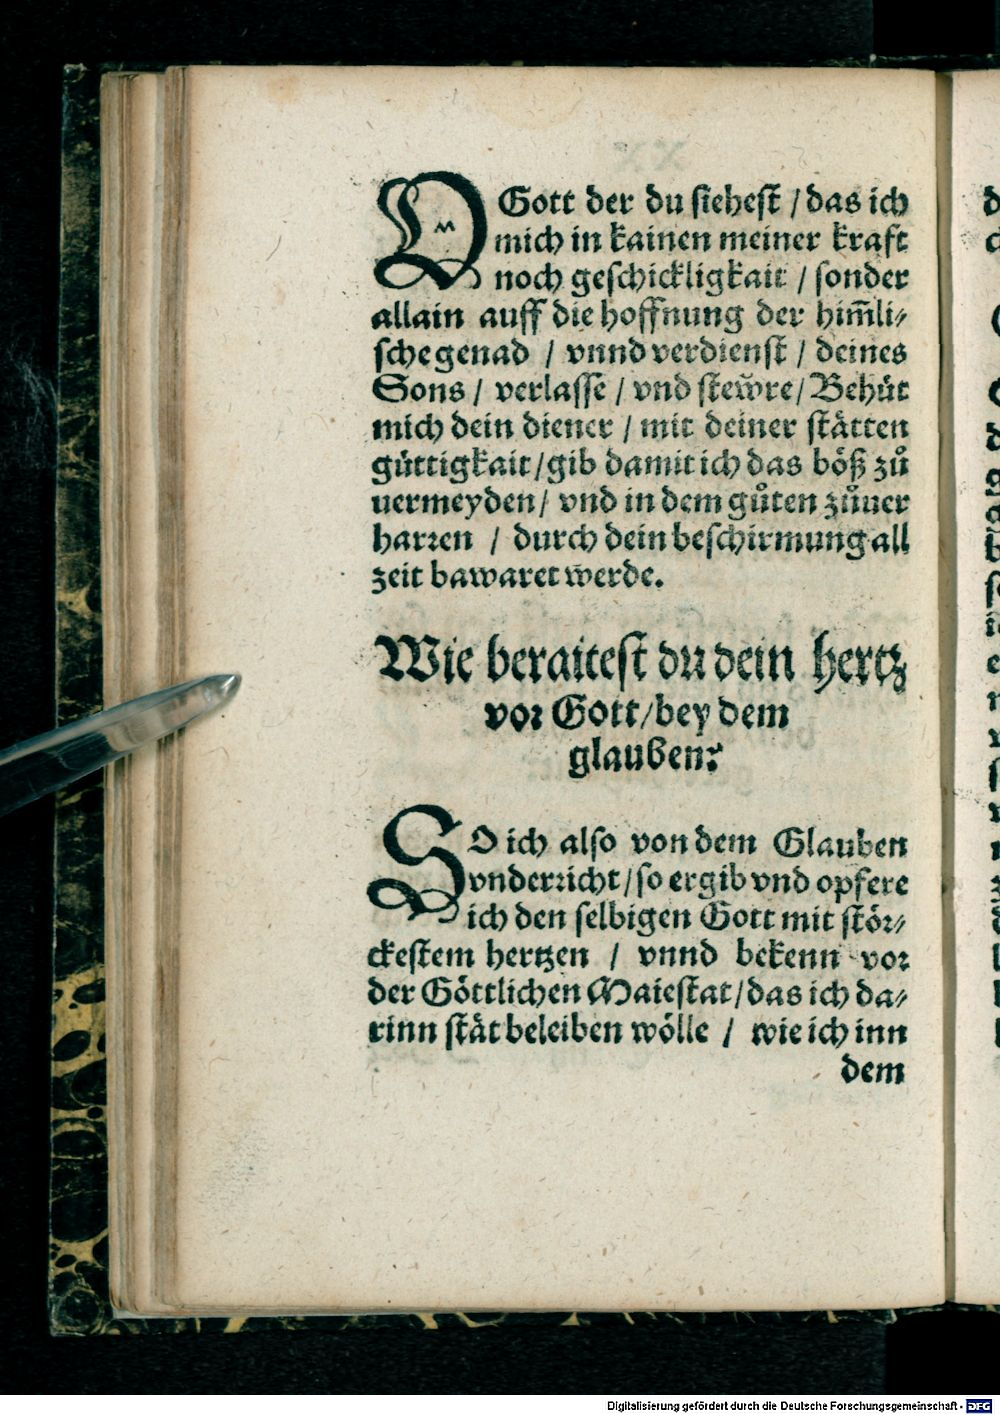 O Gott der du siehest / das ich
mich in kainen meiner kraft
noch geschickligkait / sonder
allain auff die hoffnung der him̃li⸗
sche genad / vnnd verdienst / deines
Sons / verlasse / vnd stew̃re / Behüt
mich dein diener / mit deiner stätten
güttigkait / gib damit ich das böß zů
uermeyden / vnd in dem gůten zůuer
harꝛen / durch dein beschirmung all
zeit bawaret werde.
Wie beraitest du dein hertz
voꝛ Gott / bey dem
glauben?
SO ich also von dem Glauben
vnderꝛicht / so ergib vnd opfere
ich den selbigen Gott mit stöꝛ⸗
ckestem hertzen / vnnd bekenn voꝛ
der Göttlichen Maiestat / das ich da⸗
rinn stät beleiben wölle / wie ich inn
dem
Digitalisierung gefördert durch die Deutsche Forschungsgemeinschaft - DFG